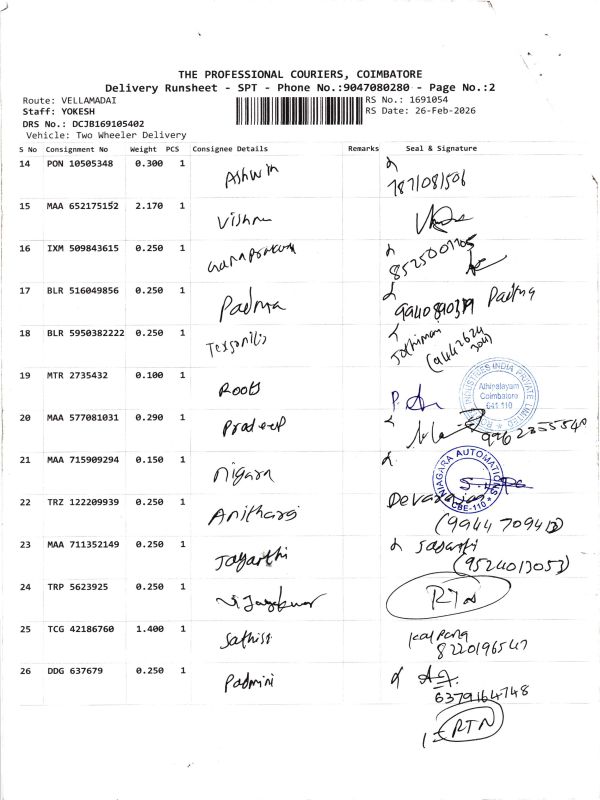 THE PROFESSIONAL COURIERS, COIMBATORE
Delivery Runsheet - SPT - Phone No.:9047080280 - Page No.:2
Route: VELLAMADAI
RS No.: 1691054
Staff: YOKESH
RS Date: 26-Feb-2026
DRS No.: DCJB169105402
Vehicle: Two Wheeler Delivery
S No Consignment No Weight PCS Consignee Details Remarks Seal & Signature
14 PON 10505348 0.300 1 Ashwin
7871081506
15 MAA 652175152 2.170 1 Vishnu
16 IXM 509843615 0.250 1
17 BLR 516049856 0.250 1 Padma Padma
18 BLR 5950382222 0.250 1
19 MTR 2735432 0.100 1 Roots
INDUSTRIES INDIA PRIVATE LIMITED
Athipalayam
Coimbatore
641 110
20 MAA 577081031 0.290 1 Pradeep
9962355540
21 MAA 715909294 0.150 1 Nigara
NIAGARA AUTOMATIONS
CBE-110
22 TRZ 122209939 0.250 1 Devarajan
23 MAA 711352149 0.250 1 Jayarthi
(9524013053)
24 TRP 5623925 0.250 1
25 TCG 42186760 1.400 1 Sathish Kalpana
8220196547
26 DDG 637679 0.250 1 Padmini
6379164748
RTN